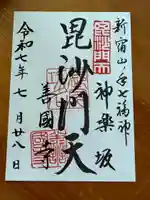 新宿山ノ手七福神
神楽坂
毘沙門天
善國寺
令和七年七月廿八日